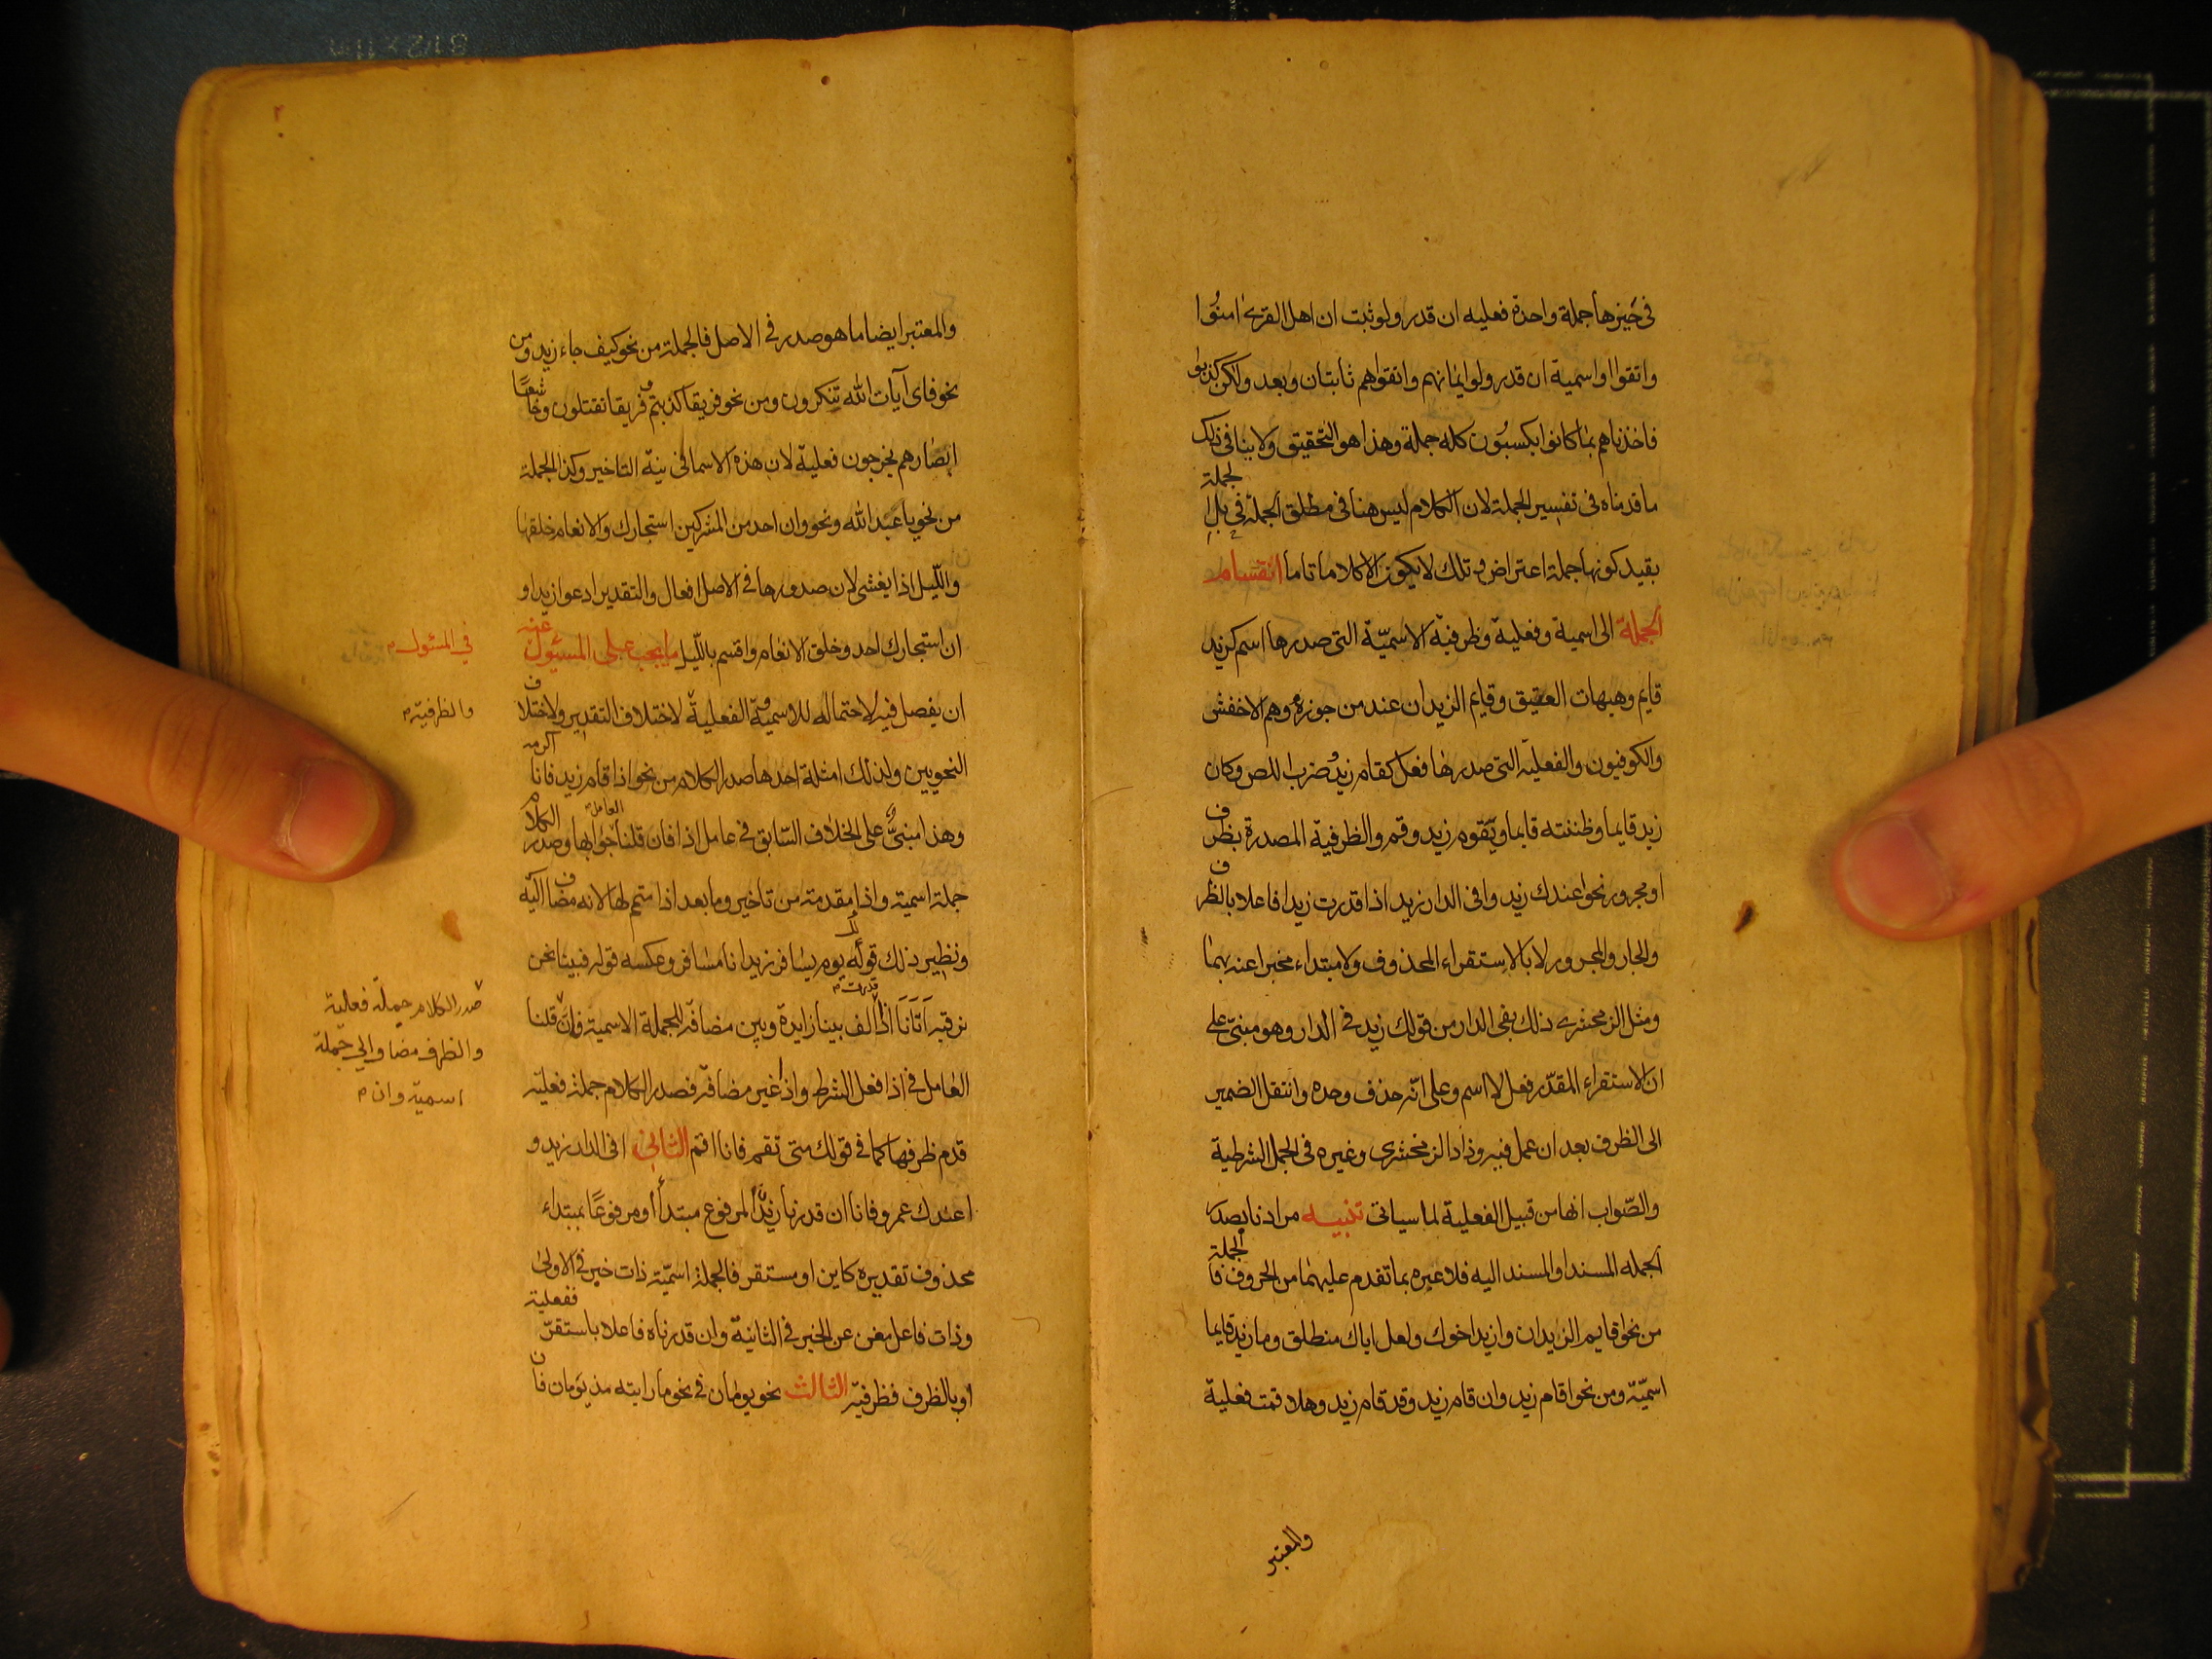 فى خبرها جملة واحدة فعليه ان قدر ولو ثبت ان اهل القرى امنوا
واتقوا واسمية ان قدر ولو ايمانهم واتقواهم ثابتان وبعد ولكن كذبوا
فاخذناهم بما كانوا يكسبون كله جملة وهذا هو التحقيق ولا ينافى ذلك
ما قدمناه فى تفسير الجملة لان الكلام ليس هنا فى مطلق الجملة فى بل ا لجملة
بقيد كونها جملة اعتراض وتلك لا يكون الا كلاما تاما انقسام
الجملة الى اسمية وفعلية وظرفيّة الاسميّة التى صدرها اسم كزيد
قايم وهيهات العقيق وقايم الزيدان عند من جوزه وهم الاخفش
والكوفيون والفعليّة التى صدرها فعل كقام زيد وضرب اللص وكان
زيد قايما وظننته قايما ويقوم زيد وقم والظرفية المصدرة بظرف
او مجرور نحو اعندك زيد وافى الدار زيد اذا قدرت زيدا فاعلا بالظرف
والجار والمجرور لا بالاستقراء المحذوف ولا مبتداء مخبرا عنه بهما
ومثل الزمخشرى ذلك بفى الدار من قولك زيد فى الدار وهو مبنىّ على
ان الاستقراء المقدّر فعل لا اسم وعلى انّه حذف وحده وانتقل الضمير
الى الظرف بعد ان عمل فيه وزاد الزمخشرى وغيره فى الجمل الشرطية
والصّواب انها من قبيل الفعلية لما سياتى تنبيه مرادنا بصدر
الجمله المسند او المسند اليه فلا عبره بما تقدم عليهما من الحروف فا لجملة
من نحو اقايم الزيدان وازيد اخوك ولعل اباك منطلق وما زيد قايما
اسميّة ومن نحو اقام زيد وان قام زيد وقد قام زيد وهلا قمت فعلية
والمعتبر
٢
والمعتبر ايضا ما هو صدر فى الاصل فالجملة من نحو كيف جاء زيد ومن
نحو فاى آيات الله تنكرون ومن نحو فريقا كذبتم وفريقا تقتلون وخاشعًا
ابصارهم يخرجون فعلية لان هذه الاسما فى نيّة التاخير وكذا الجملة
من نحو يا عبد الله ونحو وان احد من المشركين استجارك والانعام خلقها
والليل اذا يغشى لان صدورها فى الاصل افعال والتقدير ادعو ازيدا و
ان استجارك احد وخلق الانعام واقسم بالليل ما يجب على المسئول عنه
فى المسئول م
ان يفصل فيه لاحتماله للاسمية والفعلية لاختلاف التقدير ولاختلاف
والظرفيّة م
النحويين ولذلك امثلة احدها صدر الكلام من نحو اذا قام زيد فانا اكرمه
وهذا مبنىٌّ على الخلاف السّابق فى عامل اذا فان قلنا العامل م جوابها وصدر الكلام
جملة اسمية واذا مقدمة من تاخير وما بعد اذا متمم لها لانه مضاف اليه
ونظير ذلك قوله يوم يسافر زيد انا مسافر وعكسه قوله فبينا نحن
نرقبه اتانا اذا قدرت م الف بينا زايدة وبين مضافة للجملة الاسمية فان قلنا
صدر الكلام جملة فعلية
والظرف مضاف الى جملة
اسميّة وان م
العامل فى اذا فعل الشرط واذا غير مضافة فصدر الكلام جملة فعليّة
قدم ظرفها كما فى قولك متى تقم فانا اقم الثانى افى الدار زيد و
اعندك عمرو فانا ان قدرنا زيدًا المرفوع مبتدأ او مرفوعًا بمبتداء
محذوف تقديره كاين او مستقر فالجملة اسميّة ذات خبر فى الاولى
وذات فاعل مغن عن الخبر فى الثانية وان قدرناه فاعلا باستقرّ ففعلية
او بالظرف فظرفيّة الثالث نحو يومان فى نحو ما رايته مذ يومان فان